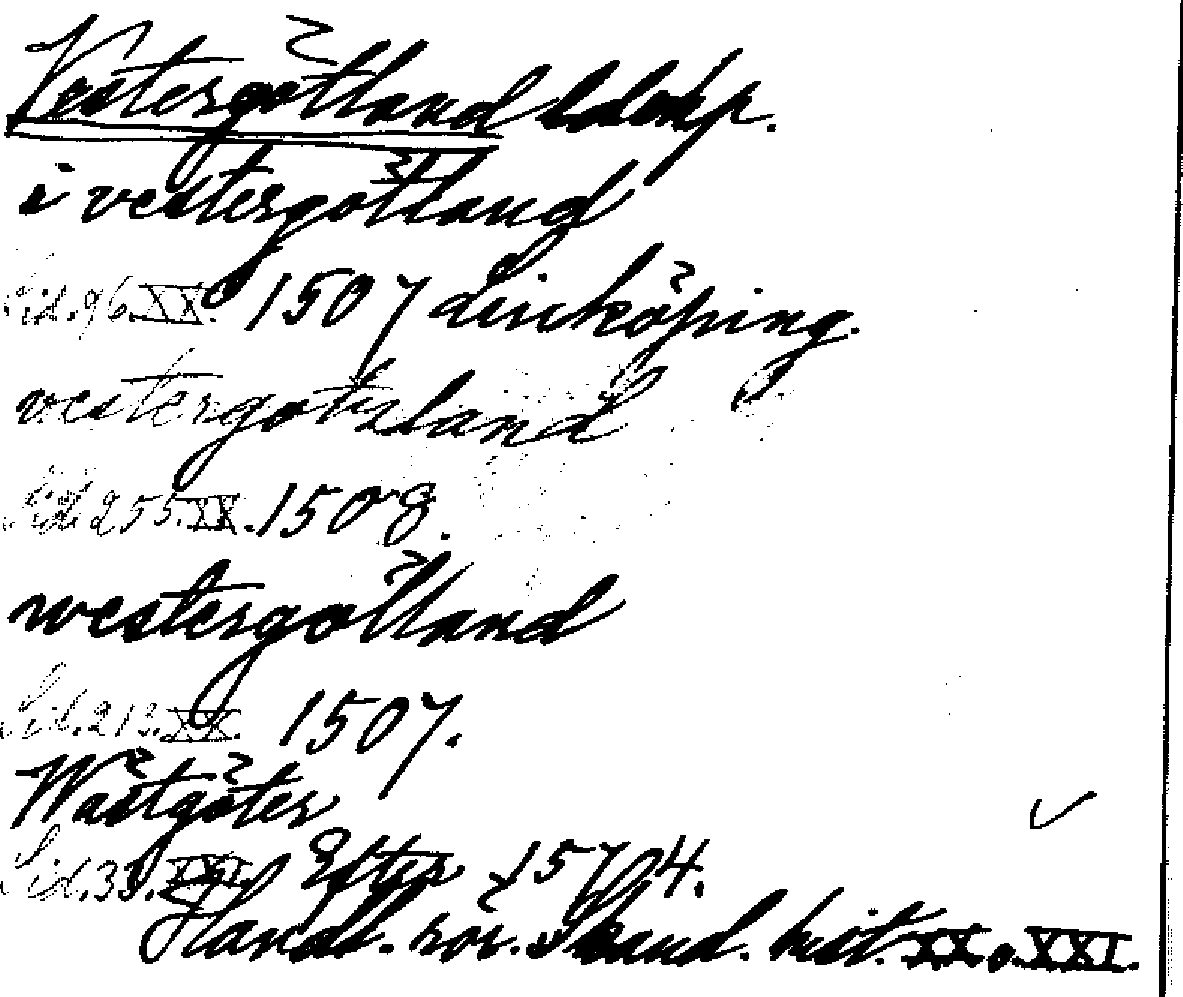 Vestergötland ldskp.
i vestergötland
Sid. 96. XX. 1507 Linköping.
vestergotzland
Sid. 255. XX. 1508.
westergötland
Sid. 213. XX. 1507.
Wästgöter
Sid. 33. XXI. Efter 1574.
Handl. rör. Skand. hist. XX o. XXI.